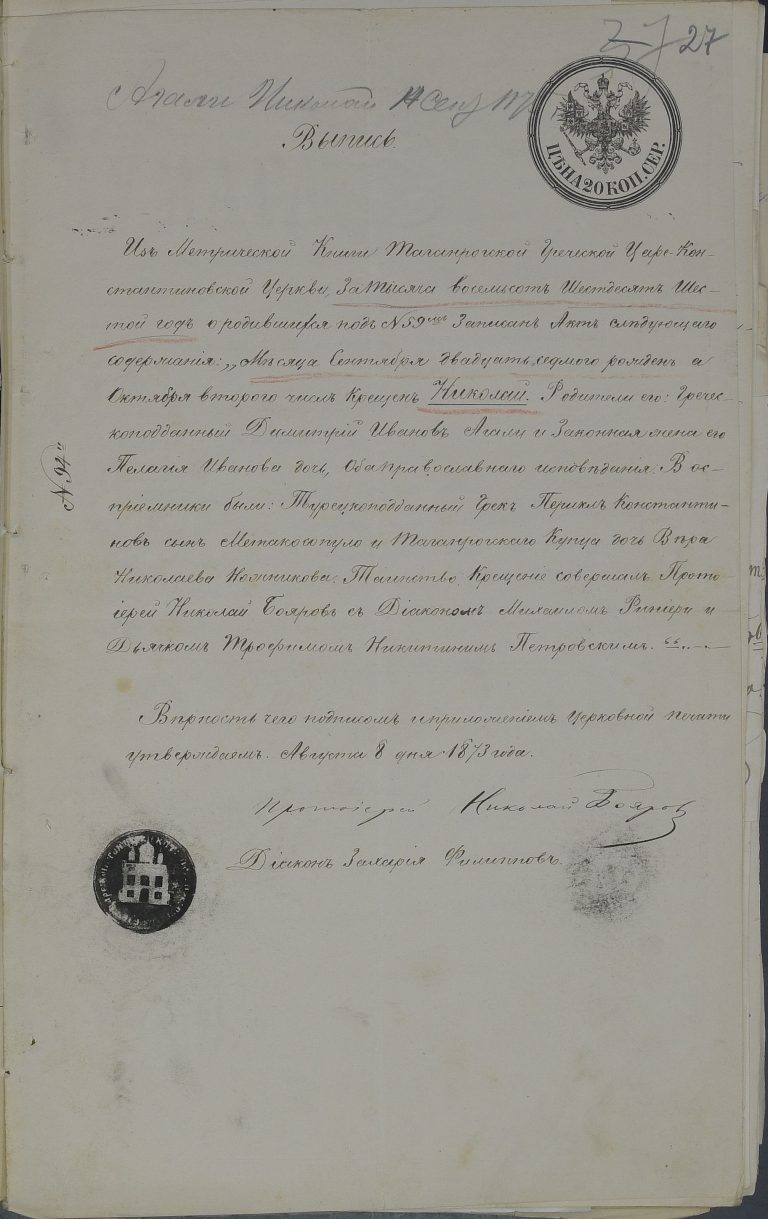 27
Агали Николай
Выпись.
ЦѢНА 20 КОП. СЕР.
Изъ Метрической Книги Таганрогской Греческой Царе-Кон-
стантиновской Церкви, За Тысяча восемьсотъ Шестдесятъ Шес-
той годъ о родившихся подъ №59мъ Записанъ Актъ слѣдующаго
содержанія: „Мѣсяца Сентября двадцать седмого рожденъ а
Октября второго числъ Крещенъ Николай. Родители его: Гречес-
коподданный Димитрій Ивановъ Агали и Законная жена его
Пелагія Иванова дочь, Оба православнаго исповѣданія. Вос-
пріемники были: Турецкоподданный Грекъ Периклъ Константи-
новъ сынъ Метаксопуло и Таганрогскаго Купца дочь Вѣра
Николаева Ножникова. Таинство Крещеніе совершалъ Прото-
іерей Николай Бояровъ съ Діакономъ Михаиломъ Ринieри и
Дьячкомъ Трофимомъ Никитинимъ Петровскимъ. “
№ 94й
Вѣрность чего подписомъ и приложеніемъ Церковной печати
утверждаемъ. Августа 8 дня 1873 года.
Протоіерей Николай Бояровъ
Діаконъ Захарія Филипповъ.